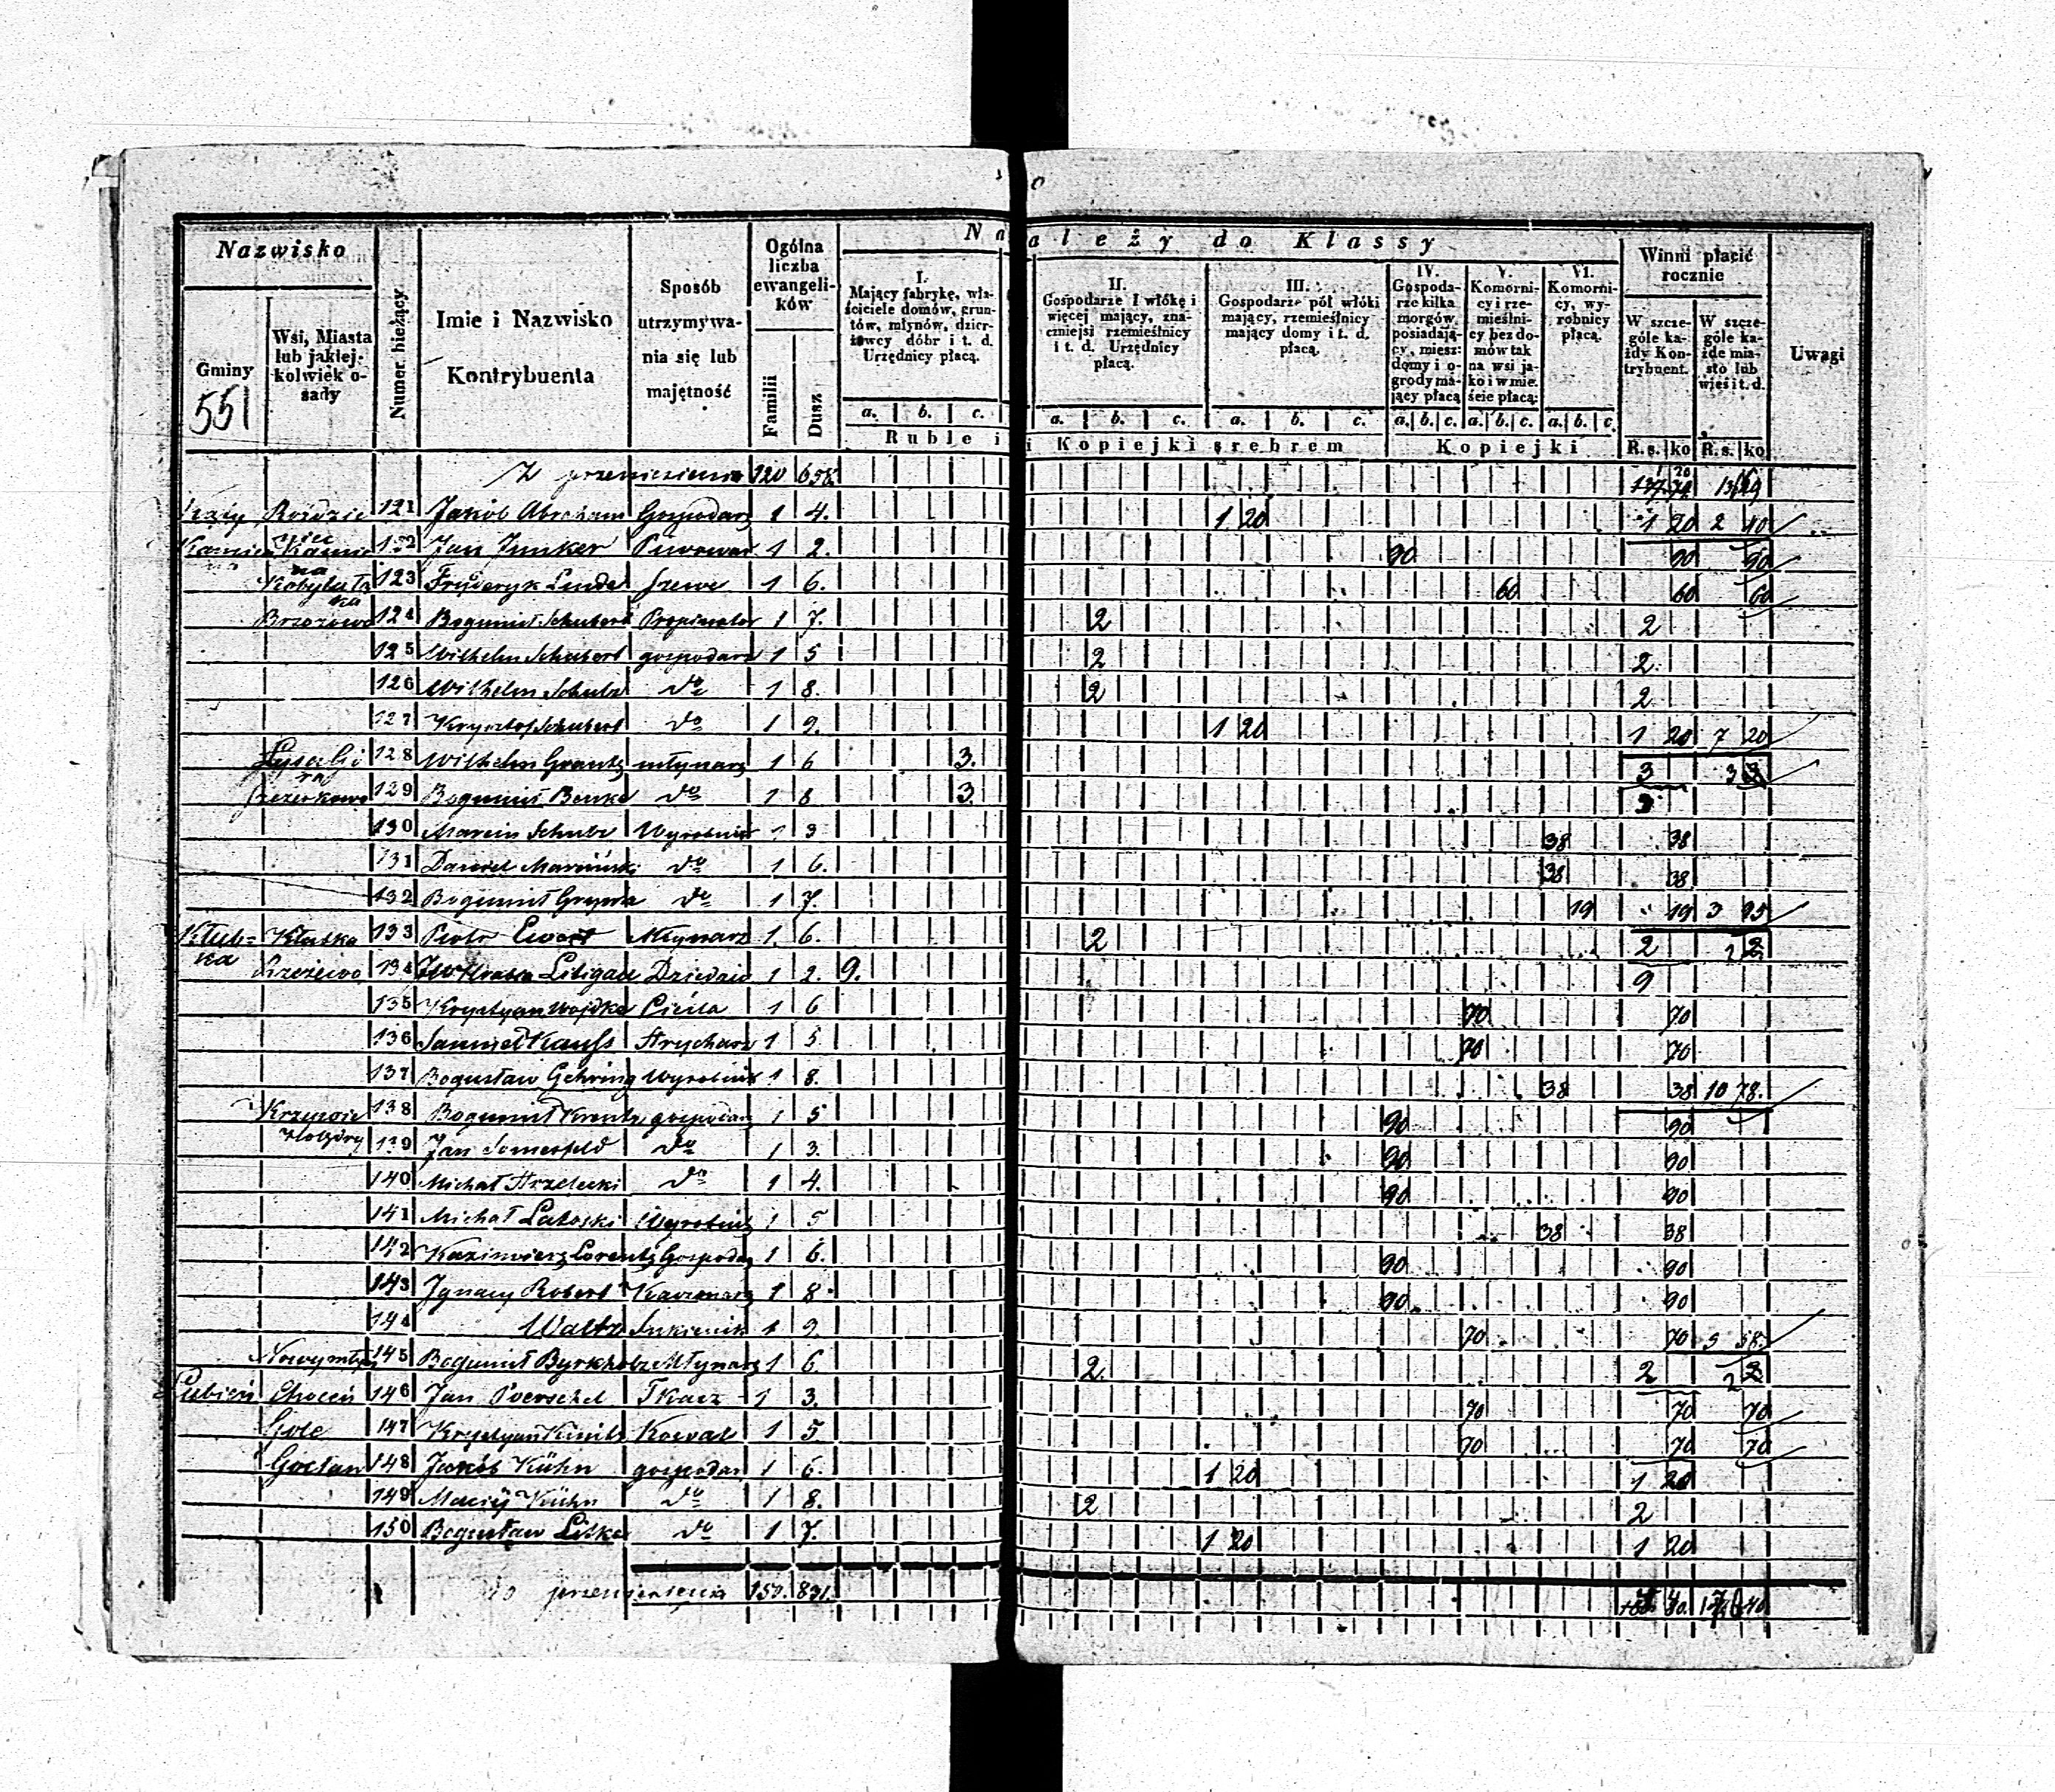 Nazwisko
Należy do Klassy
Gminy
551
Wsi, Miasta lub jakiej-kolwiek o-sady
Numer bieżący
Imie i Nazwisko Kontrybuenta
Sposób utrzymywa-nia się lub majętność
Ogólna liczba ewangeli-ków
Familii
Dusz
I. Mający fabrykę, wła-ściciele domów, grun-tów, młynów, dzier-żawcy dóbr i t. d. Urzędnicy płacą.
II. Gospodarze I włókę i więcej mający, zna-czniejsi rzemieślnicy i t. d. Urzędnicy płacą.
III. Gospodarze pół włóki mający, rzemieślnicy mający domy i t. d. płacą.
IV. Gospoda-rze kilka morgów posiadają-cy, miesz: domy i o-grody ma-jący płacą
V. Komorni-cy i rze-mieślni-cy bez do-mów tak na wsi ja-ko i w mie-ście płacą:
VI. Komorni-cy, wy-robnicy płacą.
Winni płacić rocznie
W szcze-góle ka-żdy Kon-trybuent.
W szcze-góle ka-żde mia-sto lub wieś i t. d.
Uwagi
a. b. c. a. b. c. a. b. c. a. b. c. a. b. c. a. b. c.
Ruble i Kopiejki srebrem Kopiejki R.s. ko R.s. ko
Z przeniesienia 120 658
121 Jakób Abraham Gospodarz 1 4. 1 20 1 20 2 40
122 Jan Junker Piwowar 1 2. 90 90 90
123 Fryderyk Linde Szewc 1 6. 60 60 60
Brzozowo 124 Bogumił Schubert Propinator 1 7. 2 2
125 Wilhelm Schubert gospodarz 1 5 2 2
126 Wilhelm Schulz do 1 8. 2 2
127 Krysztof Schubert do 1 9. 1 20 1 20 7 20
128 Wilhelm Grantz młynarz 1 6 3. 3 3
129 Bogumił Benke do 1 8 3. 3
130 Marcin Schulz Wyrobnik 1 3 38 38
131 Daniel Marciński do 1 6. 38 38
132 Bogumił do 1 7. 19 19 3 95
Kłub-ka Kłubka 133 Piotr Ewert Młynarz 1. 6. 2 2 2
134 1 2. 9. 9
135 Krystyan Wojdke Cieśla 1 6 70 70
136 Samuel Strycharz 1 5 70 70
137 Bogusław Gehring Wyrobnik 1 8. 38 38 10 78.
138 Bogumił gospodarz 1 5 90 90
139 Jan Somerfeld do 1 3. 90 90
140 Michał Strzelecki do 1 4. 90 90
141 Michał Latoski Wyrobnik 1 5 38 38
142 Kazimierz Lorentz Gospodarz 1 6. 90 90
143 Ignacy Robert Karczmarz 1 8. 90 90
144 Waltz Sukiennik 1 9. 70 70 5 58.
Nowy młyn 145 Bogumił Byrkholz Młynarz 1 6. 2 2 2
Lubień Choceń 146 Jan Poerschel Tkacz 1 3. 70 70 70
Gole 147 Krystyan Kowal 1 5. 70 70 70
148 Jakób Kühn gospodarz 1 6. 1 20 1 20
149 Maciej Kühn do 1 8. 2 2
150 Bogusław Litke do 1 7. 1 20 1 20
Do przeniesienia 150. 831.